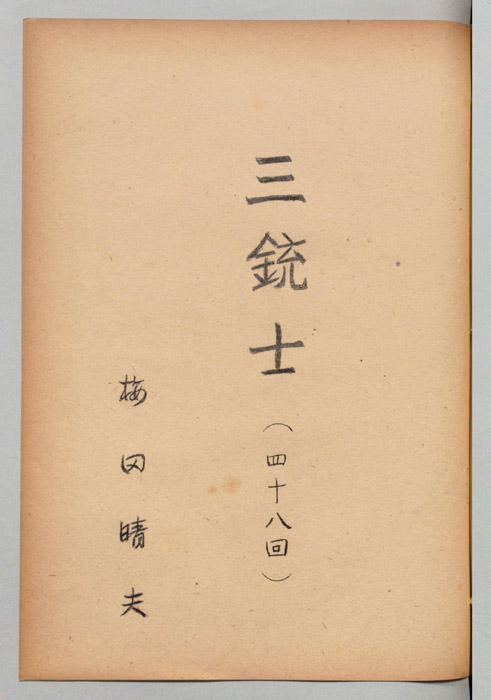 三銃士(四十八回)
梅田晴夫